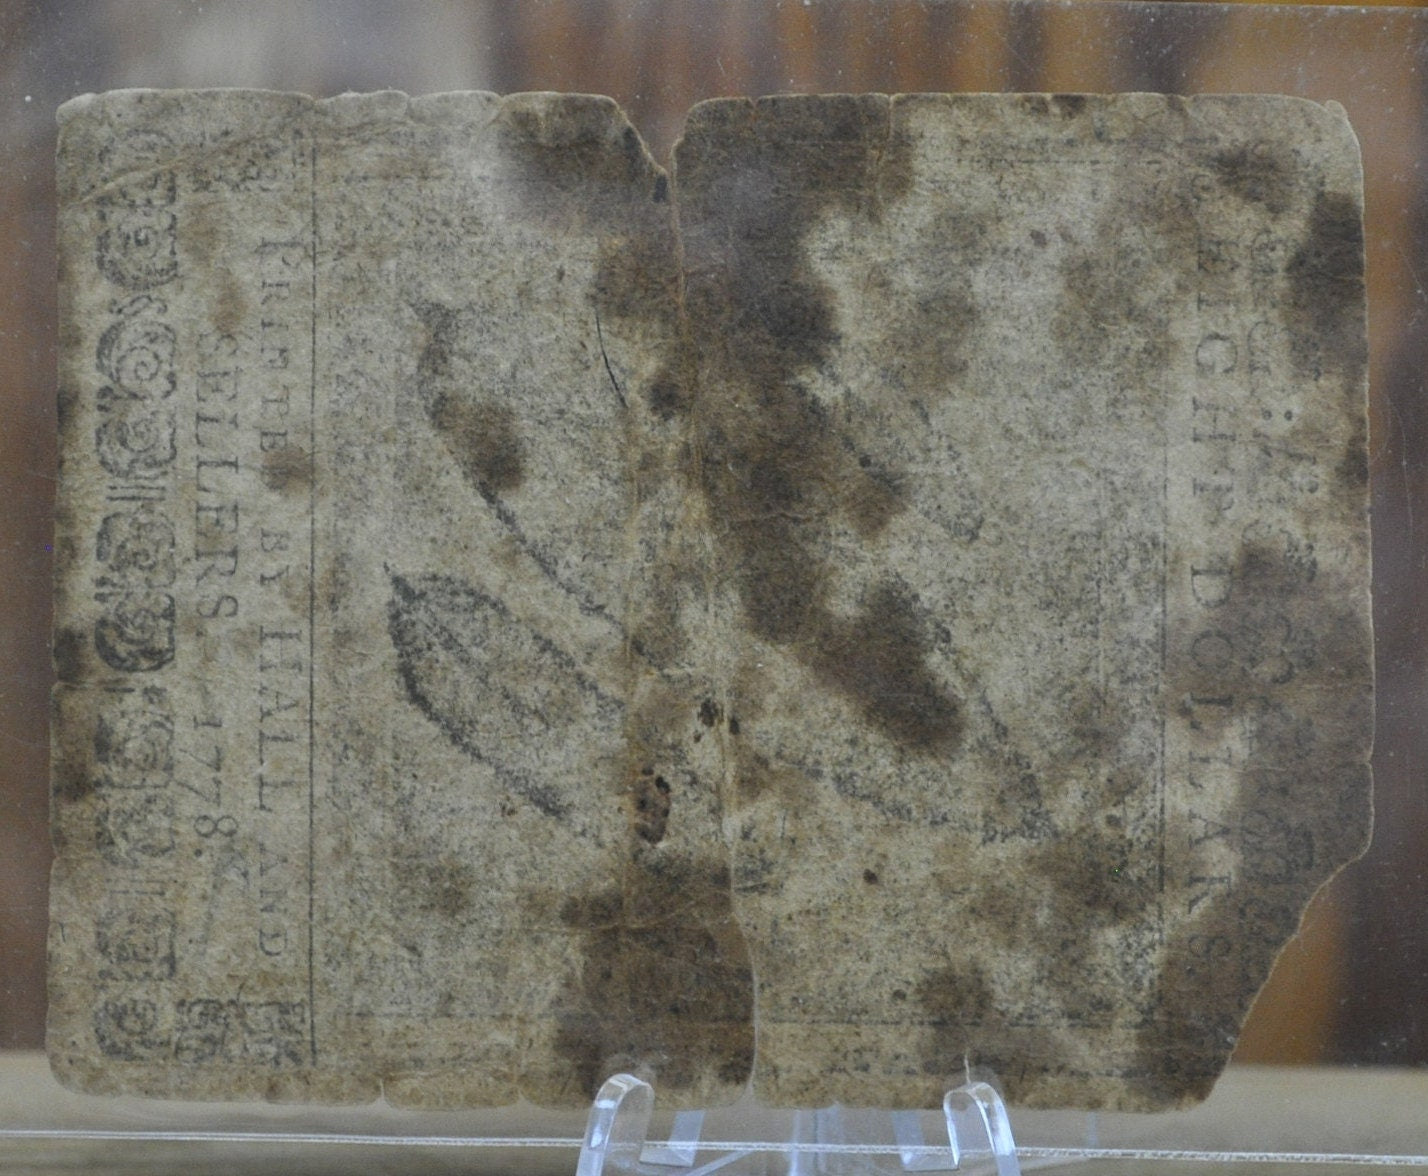 EIGHT DOLLARS.
PRINTED BY HALL AND
SELLERS. 1778.